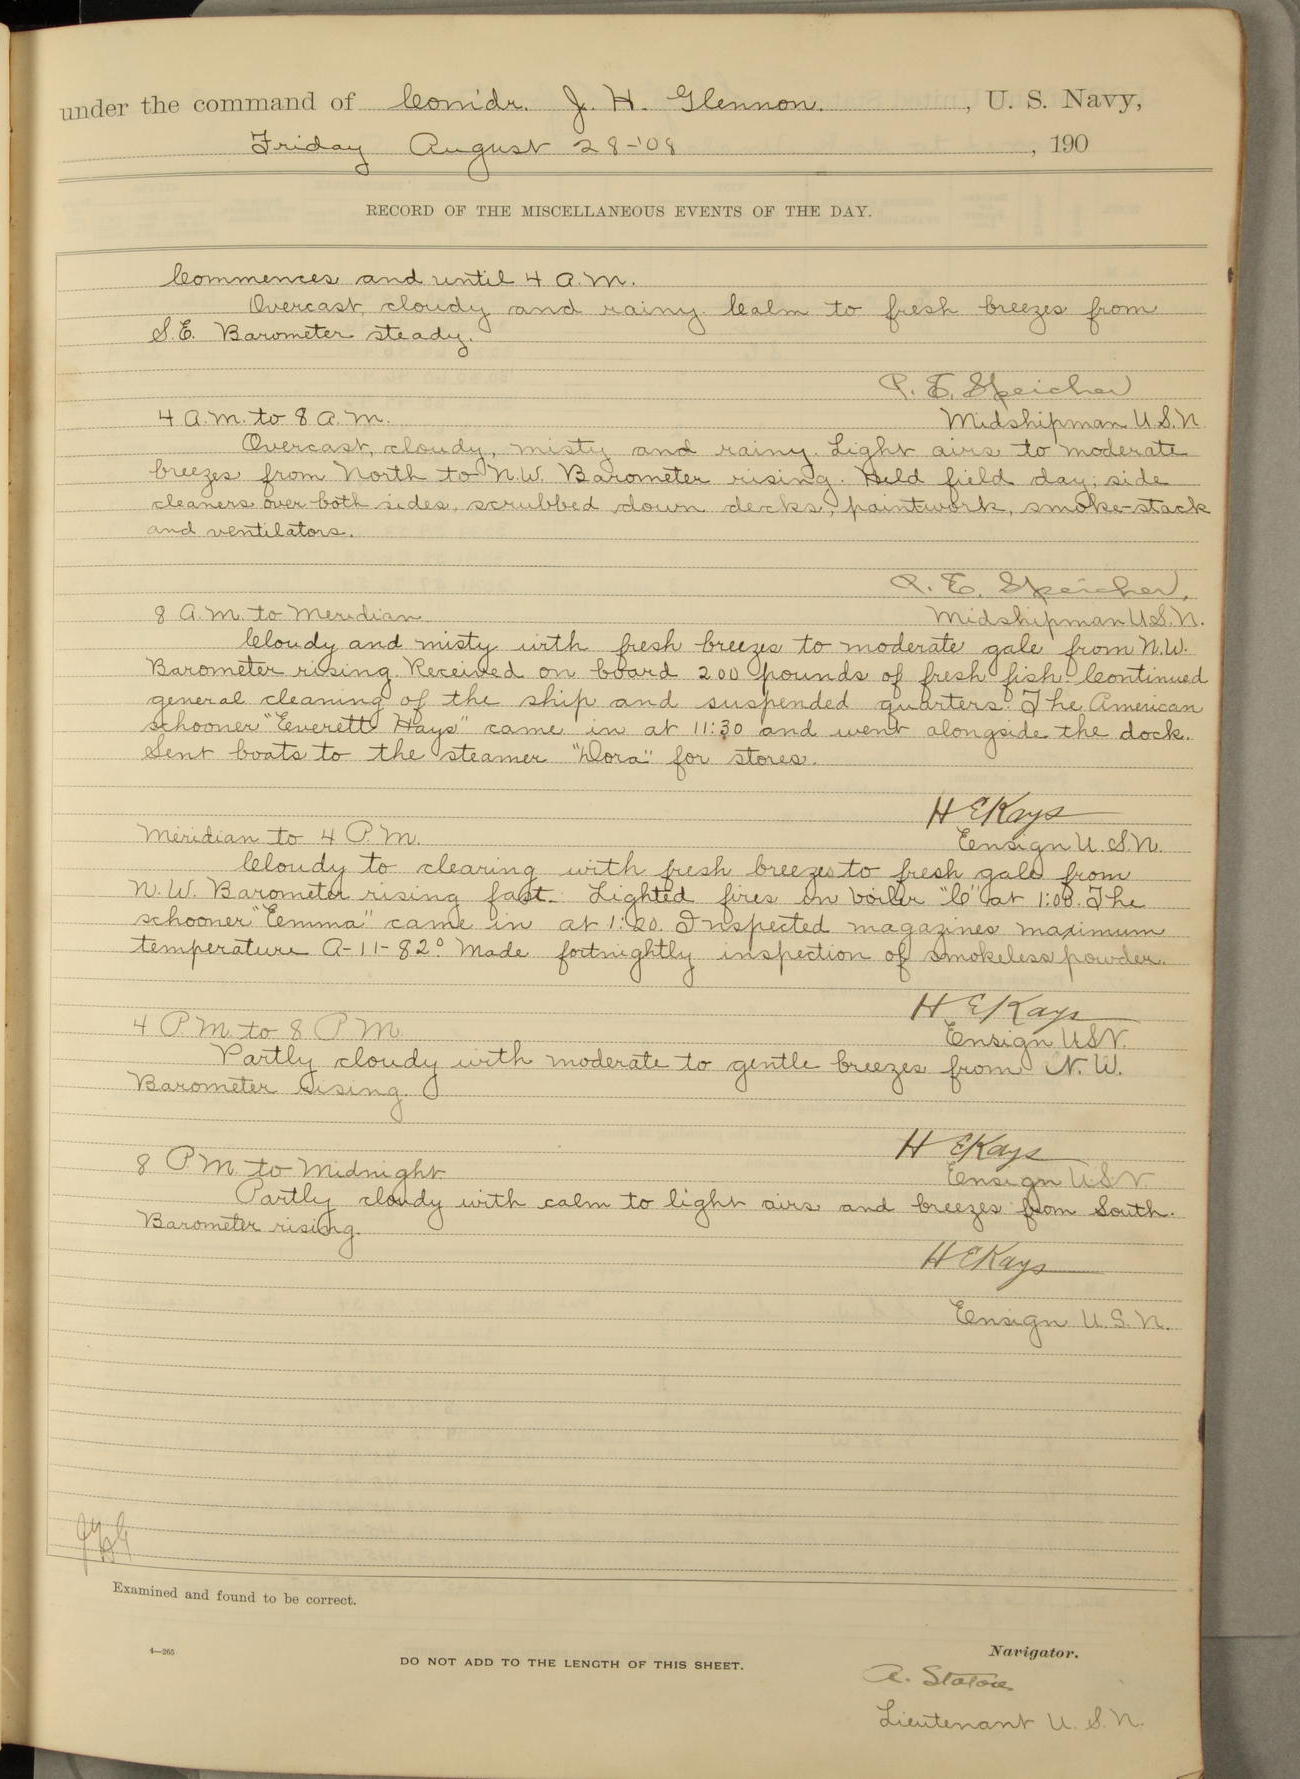 under the command of Com'dr. J. H. Glennon. , U. S. Navy,
Friday August 28-'08 , 190
RECORD OF THE MISCELLANEOUS EVENTS OF THE DAY.
Commences and until 4 A.M.
Overcast, cloudy and rainy. Calm to fresh breezes from
S.E. Barometer steady.
P. E. Speicher
4 A.M. to 8 A.M.
Midshipman U.S.N.
Overcast, cloudy, misty and rainy. Light airs to moderate
breezes from North to N.W. Barometer rising. Held field day; side
cleaners over both sides, scrubbed down decks, paintwork, smoke-stack
and ventilators.
P. E. Speicher,
8 A.M. to Meridian
Midshipman U.S.N.
Cloudy and misty with fresh breezes to moderate gale from N.W.
Barometer rising. Received on board 200 pounds of fresh fish. Continued
general cleaning of the ship and suspended quarters. The American
schooner "Everett Hays" came in at 11:30 and went alongside the dock.
Sent boats to the steamer "Dora" for stores.
H E Kays
Meridian to 4 P.M.
Ensign U.S.N.
Cloudy to clearing with fresh breezes to fresh gale from
N.W. Barometer rising fast. Lighted fires in boiler "C" at 1:00. The
schooner "Emma" came in at 1:20. Inspected magazines maximum
temperature A-11-82° Made fortnightly inspection of smokeless powder.
H E Kays
4 P.M. to 8 P.M.
Ensign USN.
Partly cloudy with moderate to gentle breezes from N.W.
Barometer rising.
H E Kays
8 P.M. to Midnight
Ensign U.S.N.
Partly cloudy with calm to light airs and breezes from South.
Barometer rising.
H E Kays
Ensign U.S.N.
JHG
Examined and found to be correct.
4—265
DO NOT ADD TO THE LENGTH OF THIS SHEET.
Navigator.
A. Staton
Lieutenant U.S.N.